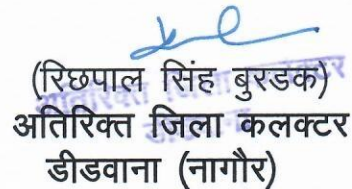 (रिछपाल सिंह बुरडक)
अतिरिक्त जिला कलक्टर
डीडवाना (नागौर)